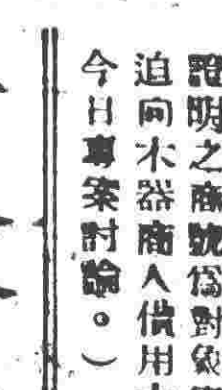 證明之商號爲對象
迫向木器商人借用
今日專案討論。）